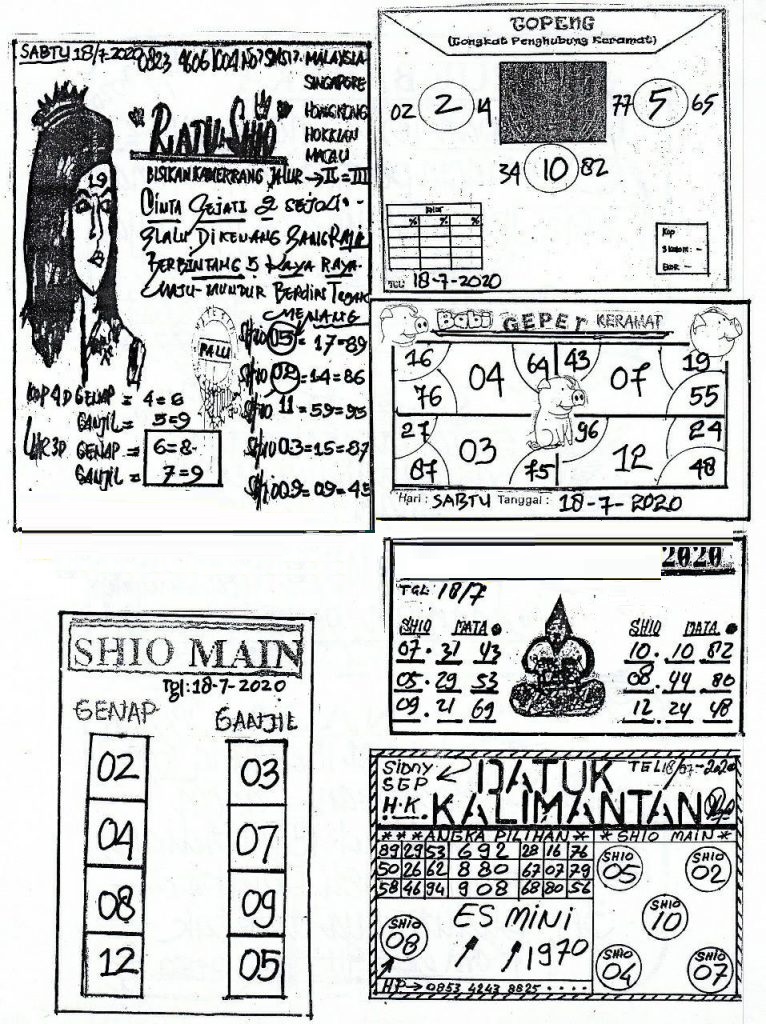 SABTU 18/7-2020
MALAYSIA
SINGAPORE
HONGKONG
HOKKIAN
MACAU
RATU SHIO
CINTA SEJATI 2 SEJOLI
SLALU DIKENANG SANG RAJA
BERBINTANG 5 KAYA RAYA
MAJU-MUNDUR BERDIRI TEGAK
MENANG
PALU
SHIO 05 = 17=89
SHIO 02 = 14=86
SHIO 11 = 59=95
SHIO 03=15=87
SHIO 09=09=45
KOP 4D GENAP = 4=6
GANJIL = 5=9
GENAP = 6=8
GANJIL = 7=9
TOPENG
(Tongkat Penghubung Keramat)
02 2 14
77 5 65
34 10 82
% % %
Kop
Shio : -
Ekor : -
TGL: 18-7-2020
Babi GEPET KERAMAT
16 04 64 43 07 19
76 55
27 03 96 12 24
87 75 48
Hari : SABTU Tanggal : 18-7-2020
2020
TGL: 18/7
SHIO MATA SHIO MATA
07. 31 43 10. 10 82
05. 29 53 08. 44 80
09. 21 69 12. 24 48
SHIO MAIN
Tgl:18-7-2020
GENAP GANJIL
02 03
04 07
08 09
12 05
SIDNY
SGP
H.K.
DATUK
KALIMANTAN
TGL 18/07-2020
***ANGKA PILIHAN* *SHIO MAIN*
89 29 53 692 28 16 76
50 26 62 880 67 07 79
58 46 94 908 68 80 56
SHIO 05
SHIO 02
SHIO 10
SHIO 04
SHIO 07
SHIO 08
ES MINI
1970
HP→0853 4243 8825